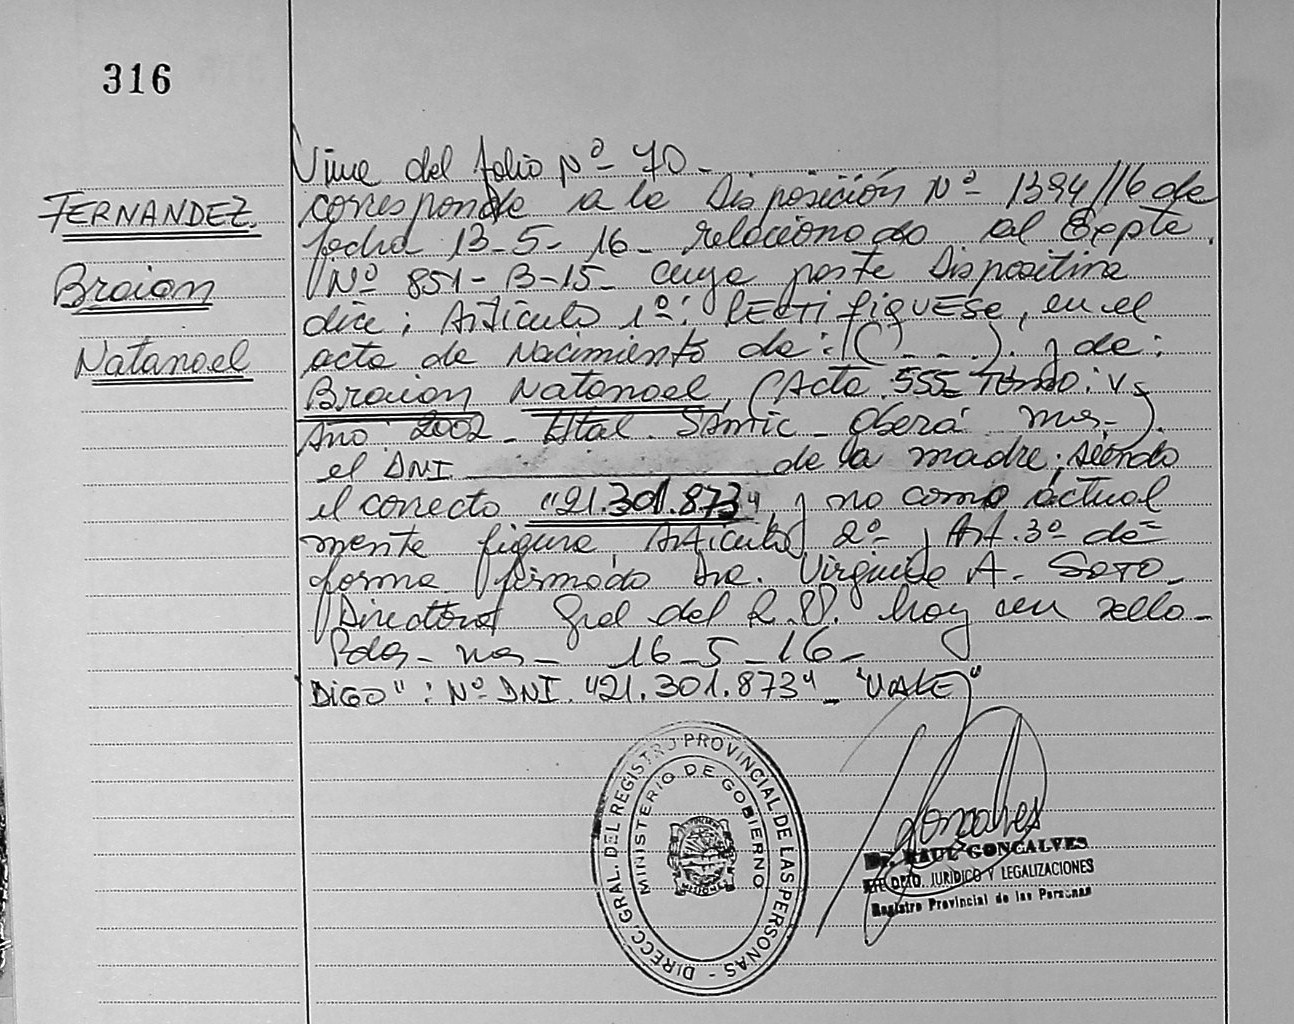 316
Viene del folio Nº 70 -
FERNANDEZ
Braion
Natanael
corresponde a la Disposición Nº 1394/16 de
fecha 13-5-16 - relacionado al Expte.
Nº 851-B-15 - cuya parte Dispositiva
dice: Artículo 1º: RECTIFIQUESE, en el
acta de Nacimiento de: (...). y de:
Braion Natanael, (Acta 555 Tomo: V
Año 2002 - Htal. Samic - Oberá mes-).
el DNI de la madre; siendo
el correcto "21.301.873" y no como actual
mente figura, Artículo 2º y Art. 3º de
forma firmado Dra. Virginia A. SOTO -
Directora Gral del R.P. hoy un sello -
Pdas - mes - 16-5-16 -
DIGO": Nº DNI. "21.301.873" - "VALE"
DIRECC. GRAL. DEL REGISTRO PROVINCIAL DE LAS PERSONAS -
MINISTERIO DE GOBIERNO
Goncalves
Dr. RAUL GONCALVES
DPTO. JURIDICO Y LEGALIZACIONES
Registro Provincial de las Personas